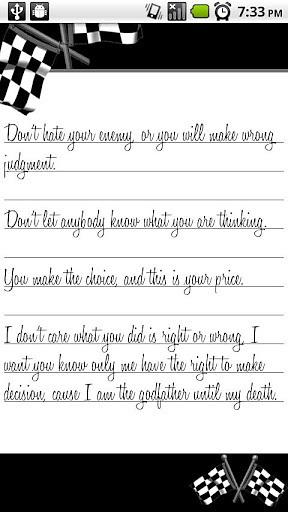 7:33 PM
Don't hate your enemy, or you will make wrong
judgment.
Don't let anybody know what you are thinking.
You make the choice, and this is your price.
I don't care what you did is right or wrong, I
want you know only me have the right to make
decision, cause I am the godfather until my death.